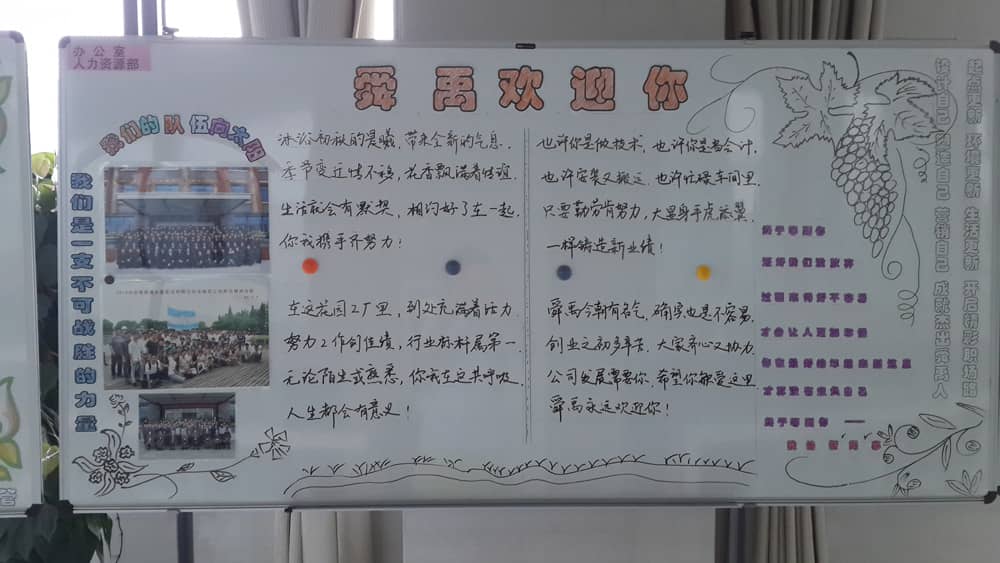 办公室
人力资源部
舜禹欢迎你
我们的队伍向太阳
我们是一支不可战胜的力量
沐浴初秋的晨曦，带来全新的气息．
季节变迁情不移，花香飘满着情谊．
生活就会有默契，相约好了在一起．
你我携手齐努力！
在这花园工厂里，到处充满着活力
努力工作创佳绩，行业标杆属第一．
无论陌生或熟悉，你我在这共呼吸
人生都会有意义！
也许你是做技术，也许你是当会计，
也许安装又搬运，也许忙碌车间里．
只要勤劳肯努力，大显身手虎添翼．
一样铸造新业绩！
舜禹今朝有名气，确实也是不容易．
创业之初多辛苦．大家齐心又协力．
公司发展需要你．希望你敬爱这里
舜禹永远欢迎你！
终于等到你
还好我们没放弃
才会让人更加珍惜
终于等到你 ——
起点更新 环境更新 生活更新 开启精彩职场路
营销自己 成就杰出舜禹人